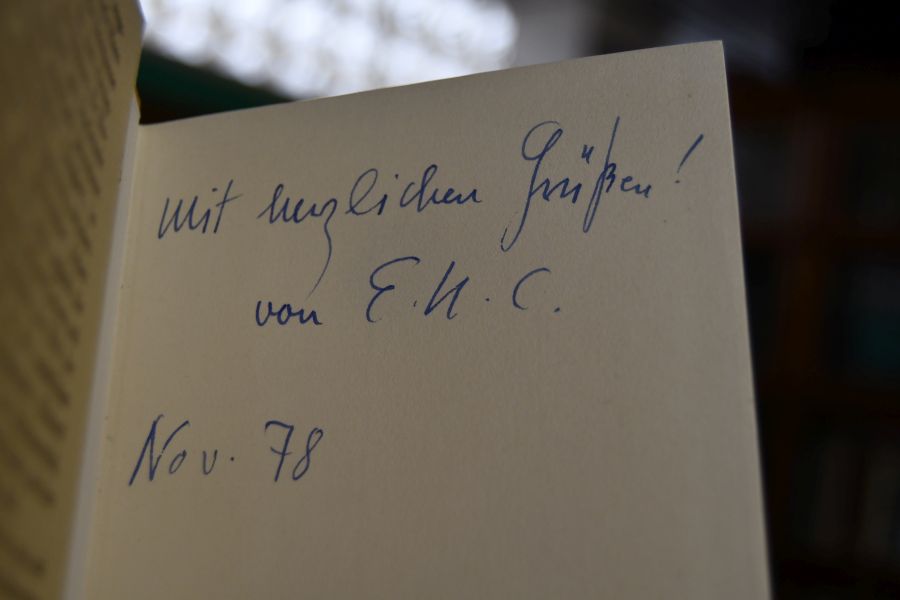 Mit herzlichen Grüßen!
von E. H. C.
Nov. 78